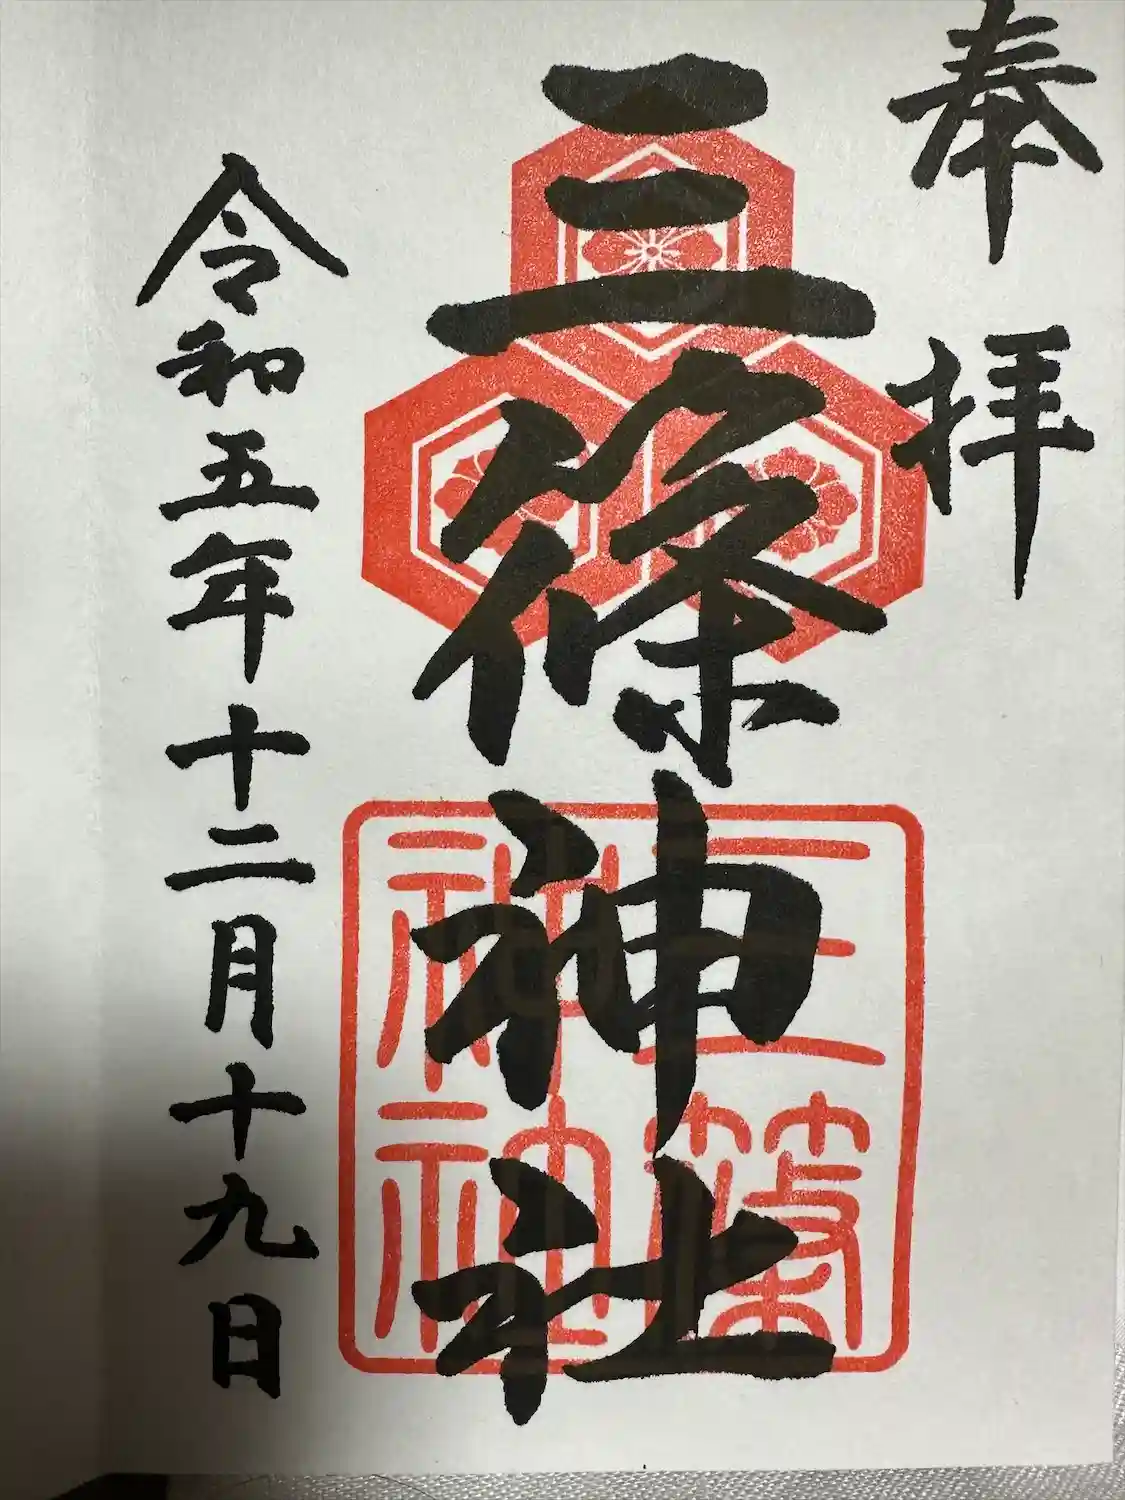 奉拝
三篠神社
令和五年十二月十九日
三篠
神社